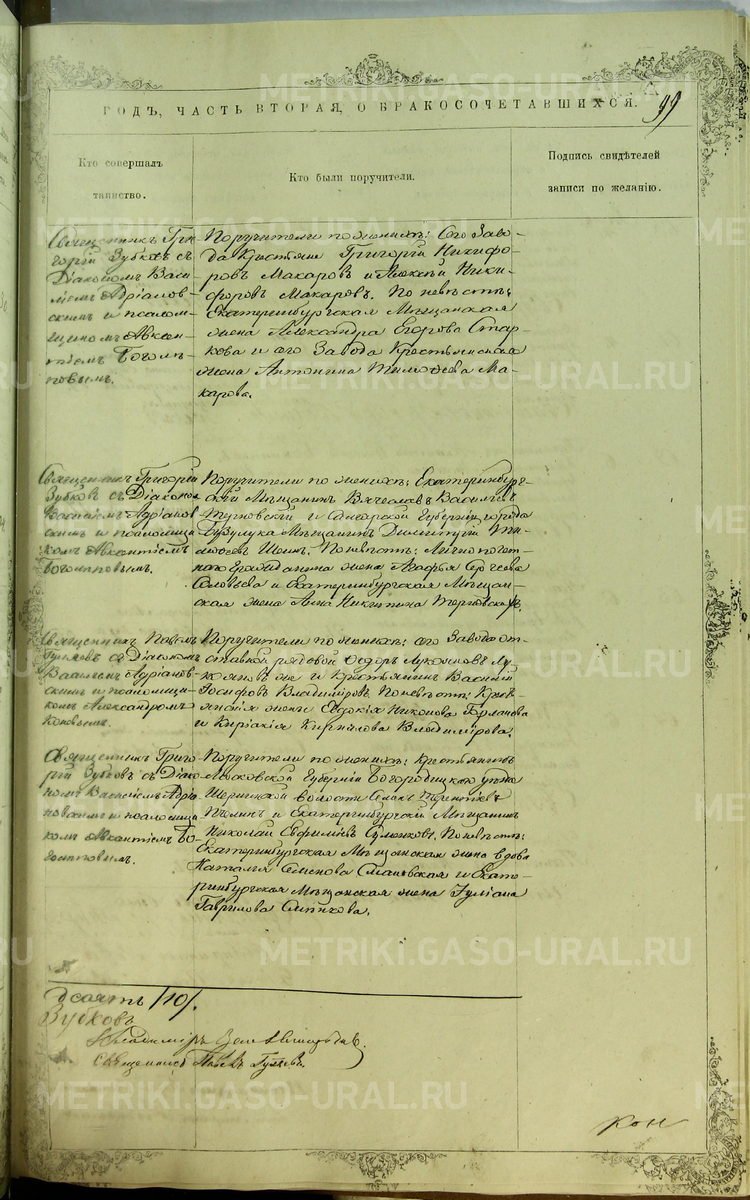 ГОДЪ, ЧАСТЬ ВТОРАЯ, О БРАКОСОЧЕТАВШИХСЯ.
99
Кто совершалъ
таинство.
Кто были поручители.
Подпись свидѣтелей
записи по желанію.
Священникъ Гри-
горій Зубковъ съ
Діакономъ Васи-
ліемъ Адріанов-
скимъ и псалом-
щикомъ Авксен-
тіемъ Богомъ-
повымъ.
Поручители по женихѣ: Сего Заво-
да Крестьяне Григорій Никифо-
ровъ Макаровъ и Алексѣй Ники-
форовъ Макаровъ. По невѣстѣ:
Екатеринбургская Мѣщанская
жена Александра Егорова Стар-
кова и сего Завода Крестьянская
жена Антонина Тимоѳеева Ма-
карова.
Священникъ Григорій
Зубковъ съ Діакономъ
Василіемъ Адріанов
скимъ и псаломщи
комъ Авксентіемъ
Поручители по женихѣ: Екатеринбург-
скій Мѣщанинъ Вячеславъ Васильевъ
Терновскій и Самарской Губерніи города
Бузулука Мѣщанинъ Димитрій Ти-
моѳеевъ Шеинъ. По невѣстѣ: Лично почет-
наго Гражданина жена Агафья Сергеева
Соловьева и Екатеринбургская Мѣщан-
ская жена Анна Никитина Терновская.
Священникъ Павелъ
Гуляевъ съ Діакономъ
Василіемъ Адріанов
скимъ и псаломщи
комъ Александромъ
Поручители по женихѣ: сего Завода от-
ставной рядовой Ѳедоръ Лукояновъ Лу-
кояновъ же и Крестьянинъ Василій
Іосифовъ Владиміровъ. По невѣстѣ: Крест-
янскія жены Евдокія Никонова
и Киріакія Кирилова Владимірова.
Священникъ Григо-
рій Зубковъ съ Діако
номъ Василіемъ Адріа
новскимъ и псаломщи
комъ Авксентіемъ Бо
Поручители по женихѣ: Крестьянинъ
Московской Губерніи Богородицкаго уѣзда
волости
и Екатеринбургскій Мѣщанинъ
Николай Евфиміевъ По невѣстѣ:
Екатеринбургская Мѣщанская жена вдова
Наталья Семенова и Екате-
ринбургская Мѣщанская жена Іуліана
Гаврилова
десять /10/.
Зубковъ
Владиміръ
Священникъ Павелъ Гуляевъ.
METRIKI.GASO-URAL.RU